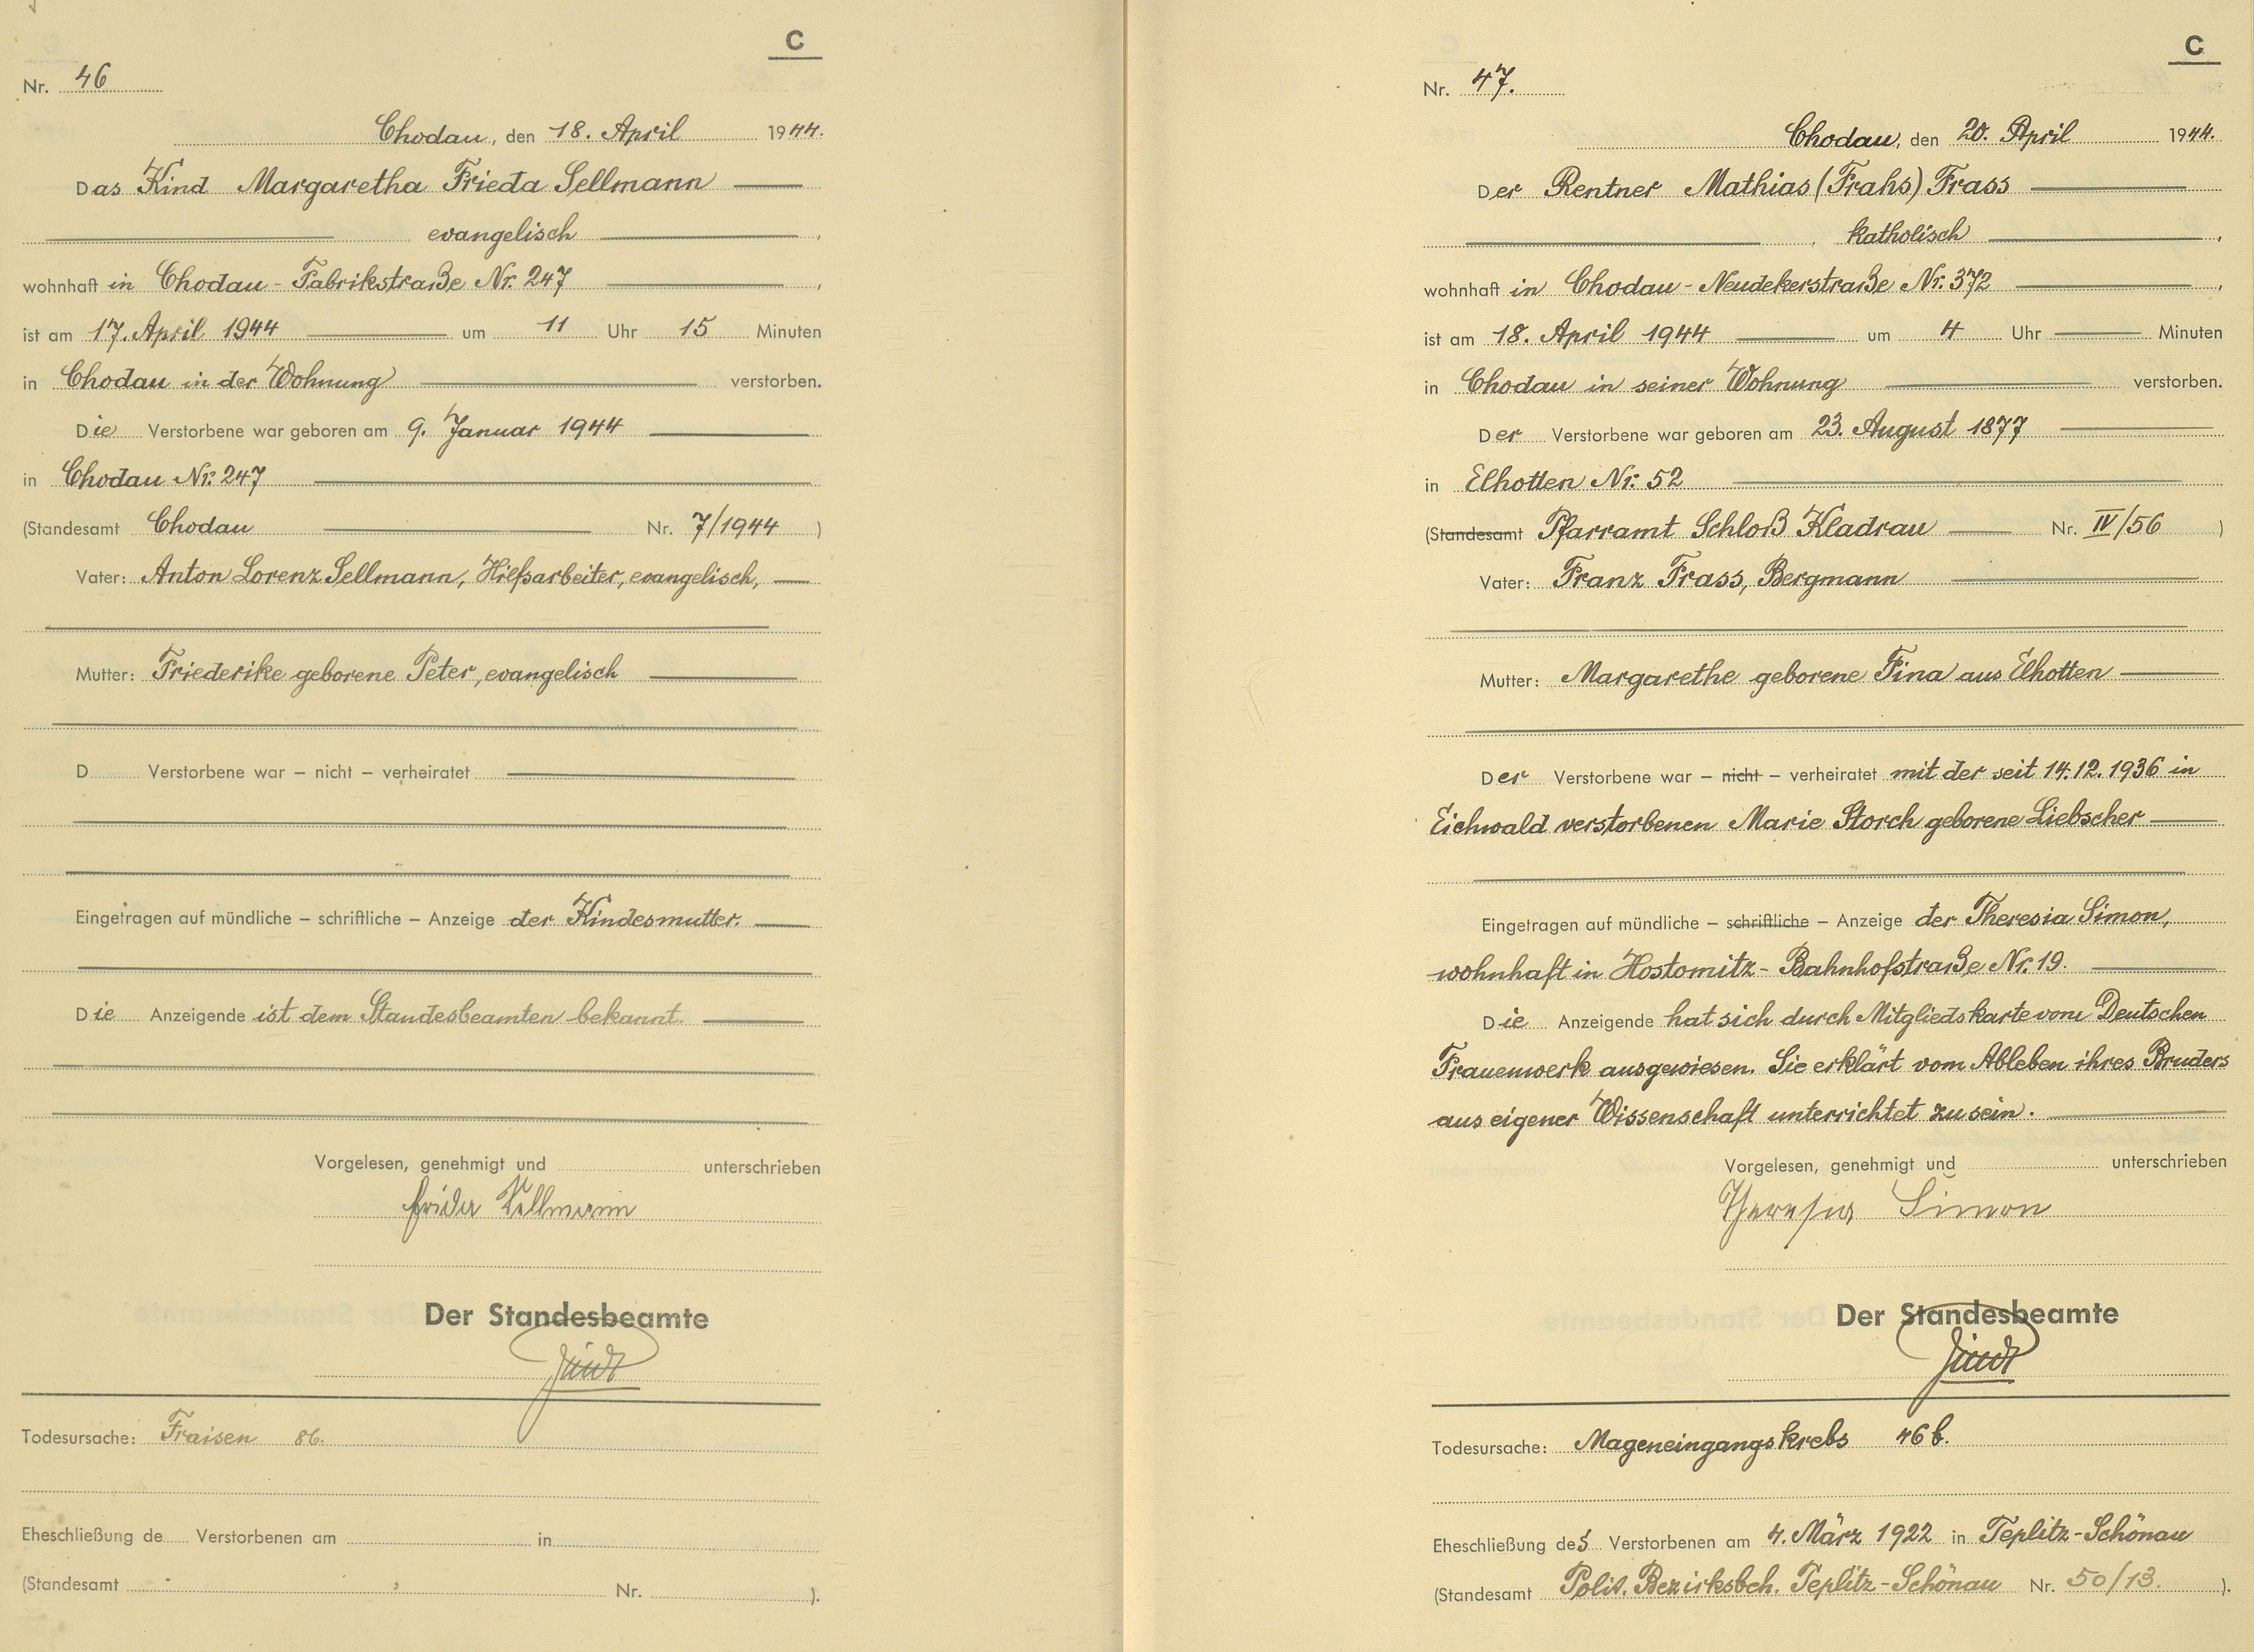 C
Nr. 46
Chodau, den 18. April 1944.
Das Kind Margaretha Frieda Sellmann
evangelisch,
wohnhaft in Chodau - Fabrikstraße Nr. 247,
ist am 17. April 1944 um 11 Uhr 15 Minuten
in Chodau in der Wohnung verstorben.
Die Verstorbene war geboren am 9. Januar 1944
in Chodau Nr. 247
(Standesamt Chodau Nr. 7/1944)
Vater: Anton Lorenz Sellmann, Hilfsarbeiter, evangelisch,
Mutter: Friederike geborene Peter, evangelisch
D Verstorbene war – nicht – verheiratet
Eingetragen auf mündliche – schriftliche – Anzeige der Kindesmutter.
Die Anzeigende ist dem Standesbeamten bekannt.
Vorgelesen, genehmigt und unterschrieben
Frieda Sellmann
Der Standesbeamte
Todesursache: Fraisen 86.
Eheschließung de Verstorbenen am in
(Standesamt Nr. ).
C
Nr. 47.
Chodau, den 20. April 1944.
Der Rentner Mathias (Frahs) Frass
katholisch,
wohnhaft in Chodau - Neudekerstraße Nr. 372,
ist am 18. April 1944 um 4 Uhr Minuten
in Chodau in seiner Wohnung verstorben.
Der Verstorbene war geboren am 23. August 1877
in Elhotten Nr. 52
(Standesamt Pfarramt Schloß Kladrau Nr. IV/56)
Vater: Franz Frass, Bergmann
Mutter: Margarethe geborene Fina aus Elhotten
Der Verstorbene war – nicht – verheiratet mit der seit 14.12.1936 in
Eichwald verstorbenen Marie Storch geborene Liebscher
Eingetragen auf mündliche – schriftliche – Anzeige der Theresia Simon,
wohnhaft in Hostomitz - Bahnhofstraße Nr. 19.
Die Anzeigende hat sich durch Mitgliedskarte vom Deutschen
Frauenwerk ausgewiesen. Sie erklärt vom Ableben ihres Bruders
aus eigener Wissenschaft unterrichtet zu sein.
Vorgelesen, genehmigt und unterschrieben
Theresia Simon
Der Standesbeamte
Todesursache: Mageneingangskrebs 46 b.
Eheschließung des Verstorbenen am 4. März 1922 in Teplitz-Schönau
(Standesamt Polit. Bezirksbeh. Teplitz-Schönau Nr. 50/13.).